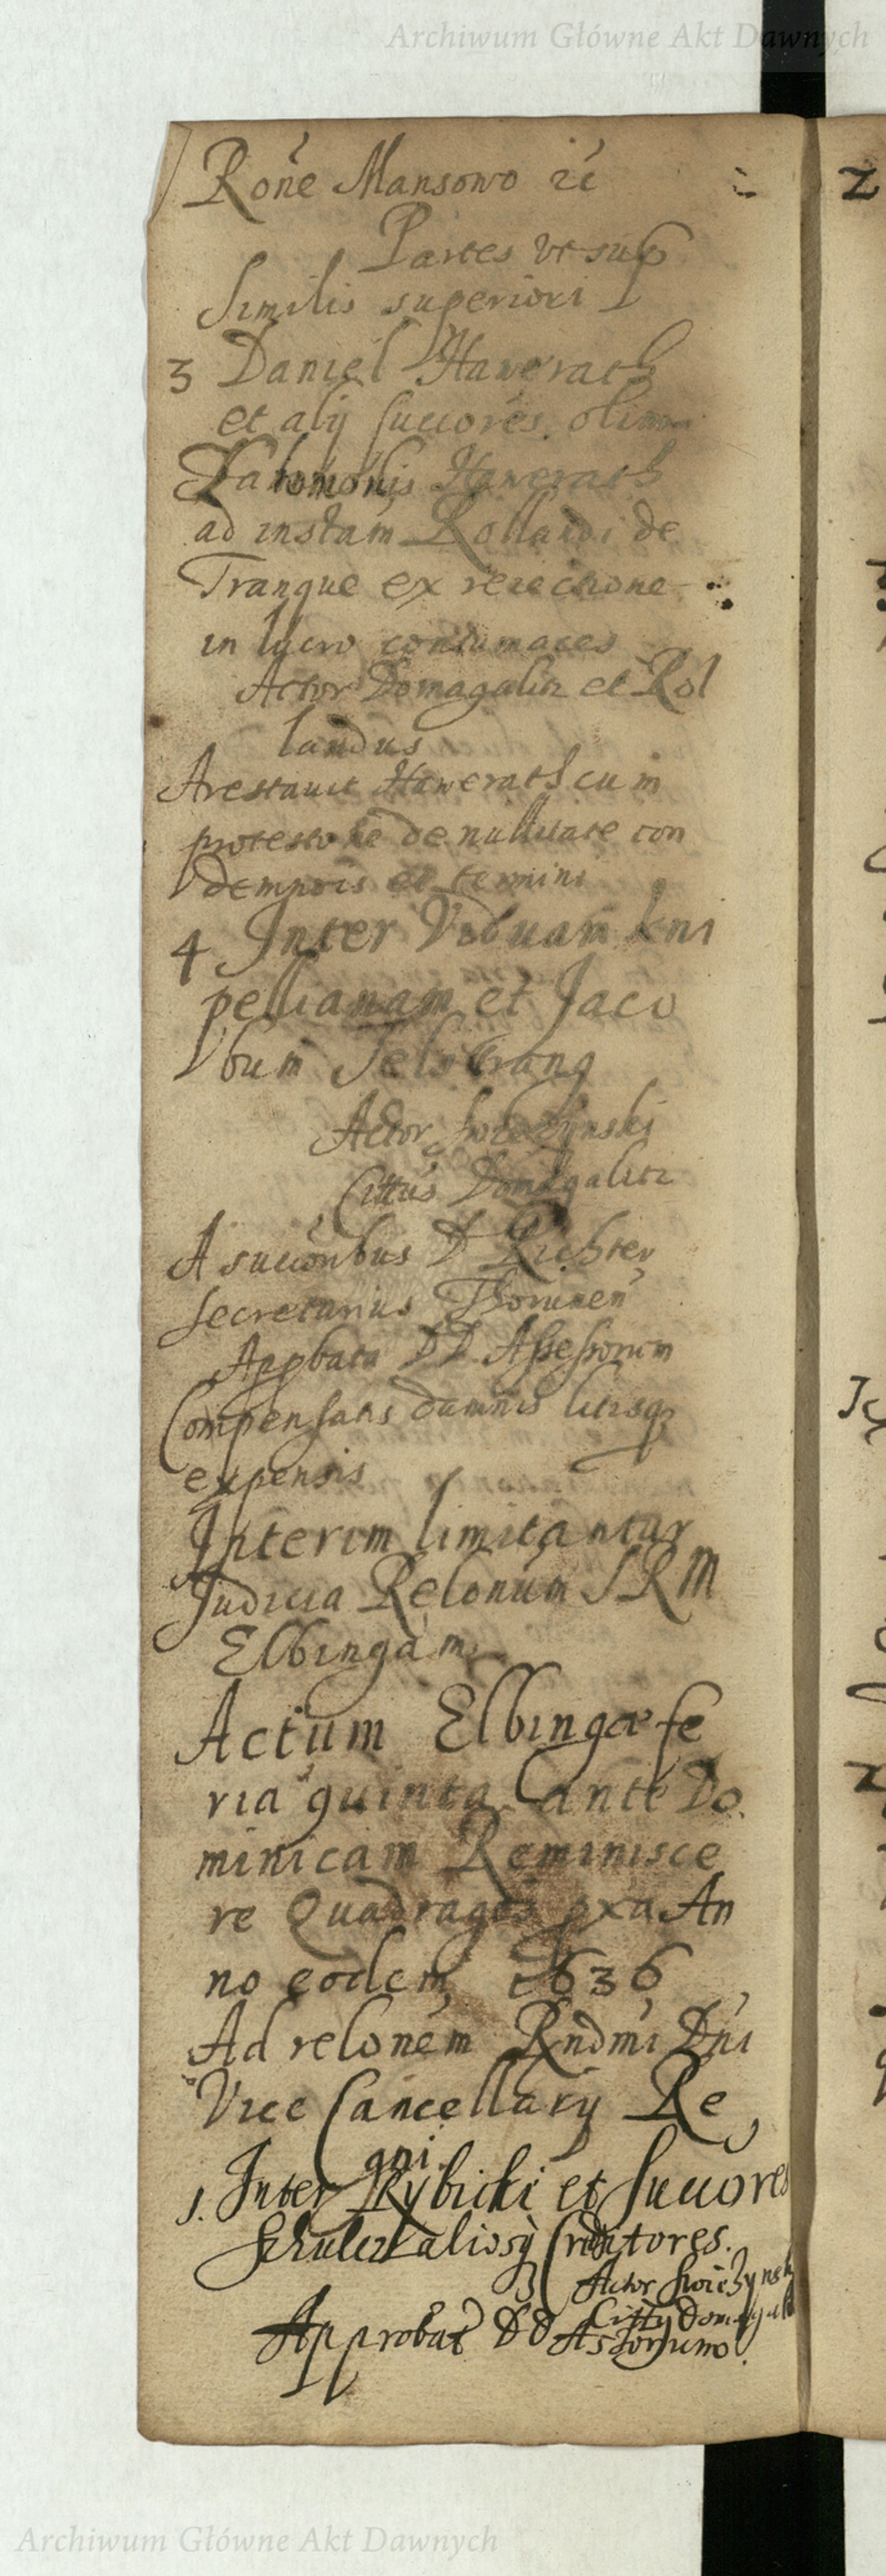 Archiwum Główne Akt Dawnych
Rone Mansowo
Partes vt sup
Similis superiori
3 Daniel Hawerath
et alij succores olim
Salomonis Hawerath
ad instam Rollandi de
Tranque ex reiectione
in lucro contumaces
Actor Domagalicz et Rol
landus
Arestauit Hawerath cum
protestone de nullitate con
demnois et termini
4 Inter Viduam Kni
pellianam et Jaco
bum Telstrang
Actor Swiechynski
Cittus Domagalicz
A succoribus D Richter
Secretarius Thorunen
Appbata DD Assessorum
Compensatis damnis litisq3
expensis
Interim limitantur
Judicia Relonum S R M
Elbingam
Actum Elbingæ fe
ria quinta ante Do
minicam Reminisce
re Quadrages pxa An
no eodem 1636
Ad relonem Rndmi Dni
Vice Cancellarij Re
gni
1. Inter Rybicki et succores
Schulcz aliosq Creditores.
Actor Swiechynsk
Citty Domagali
Approbat DD
Archiwum Główne Akt Dawnych